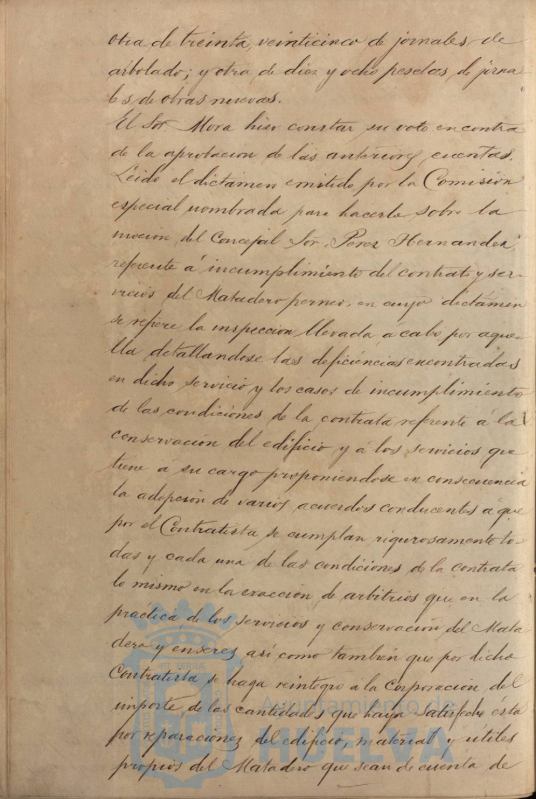 otra de treinta, veinticinco de jornales de
arbolado; y otra de diez y ocho pesetas de jorna
les de obras nuevas.
El Sor. Mora hizo constar su voto en contra
de la aprobacion de las anteriores cuentas.
Leido el dictámen emitido por la Comisión
especial nombrada para hacerlo sobre la
mocion del Concejal Sor. Perez Hernandez,
referente á incumplimiento del contrato y ser-
vicios del Matadero porcino, en cuyo dictámen
se refiere la inspeccion llevada á cabo por aque-
lla detallandose las deficiencias encontradas
en dicho servicio y los casos de incumplimiento
de las condiciones de la contrata referente á la
conservacion del edificio y á los servicios que
tiene á su cargo proponiendose en consecuencia
la adopcion de varios acuerdos conducentes á que
por el Contratista se cumplan rigurosamente to-
das y cada una de las condiciones de la contrata
lo mismo en la exaccion de arbitrios que en la
practica de los servicios y conservación del Mata
dero y enseres asi como tambien que por dicho
Contratista se haga reintegro á la Corporacion del
importe de las cantidades que haya satisfecho esta
por reparaciones del edificio, material y utiles
propios del Matadero que sean de cuenta de
Ayuntamiento de
HUELVA